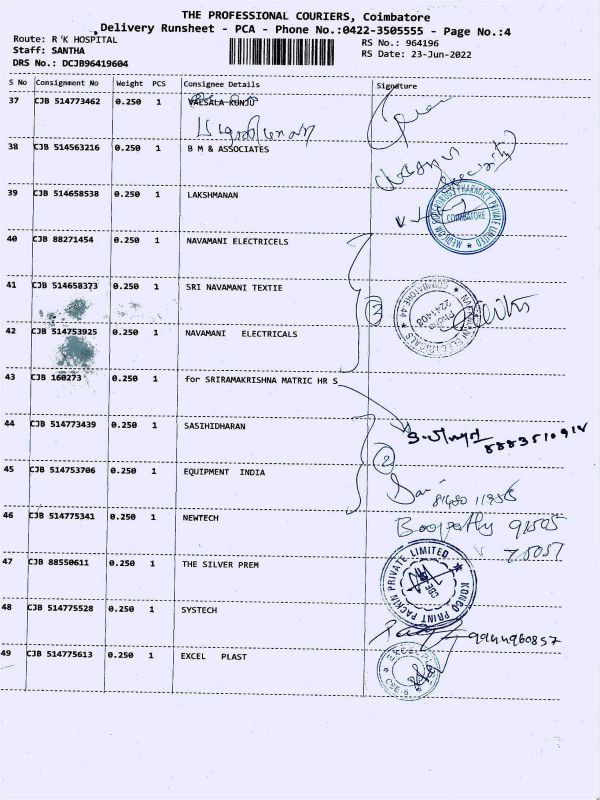 THE PROFESSIONAL COURIERS, Coimbatore
Delivery Runsheet - PCA - Phone No.:0422-3505555 - Page No.:4
Route: R K HOSPITAL
Staff: SANTHA
DRS No.: DCJB96419604
RS No.: 964196
RS Date: 23-Jun-2022
S No Consignment No Weight PCS Consignee Details Signature
37 CJB 514773462 0.250 1 VALSALA KUNJU
38 CJB 514563216 0.250 1 B M & ASSOCIATES
Security
39 CJB 514658538 0.250 1 LAKSHMANAN
PHARMACY PRIVATE LIMITED
COIMBATORE
40 CJB 88271454 0.250 1 NAVAMANI ELECTRICELS
41 CJB 514658373 0.250 1 SRI NAVAMANI TEXTIE
3
NAVAMANI ELECTRICALS
COIMBATORE-44
Phone
2241408
42 CJB 514753925 0.250 1 NAVAMANI ELECTRICALS
43 CJB 160273 0.250 1 for SRIRAMAKRISHNA MATRIC HR S
44 CJB 514773439 0.250 1 SASIHIDHARAN
8883510914
2
45 CJB 514753706 0.250 1 EQUIPMENT INDIA
46 CJB 514775341 0.250 1 NEWTECH
Boopathy 91505
75057
47 CJB 88550611 0.250 1 THE SILVER PREM
KONGO PRINT PACKIN PRIVATE LIMITED
CBE
48 CJB 514775528 0.250 1 SYSTECH
9944960857
49 CJB 514775613 0.250 1 EXCEL PLAST